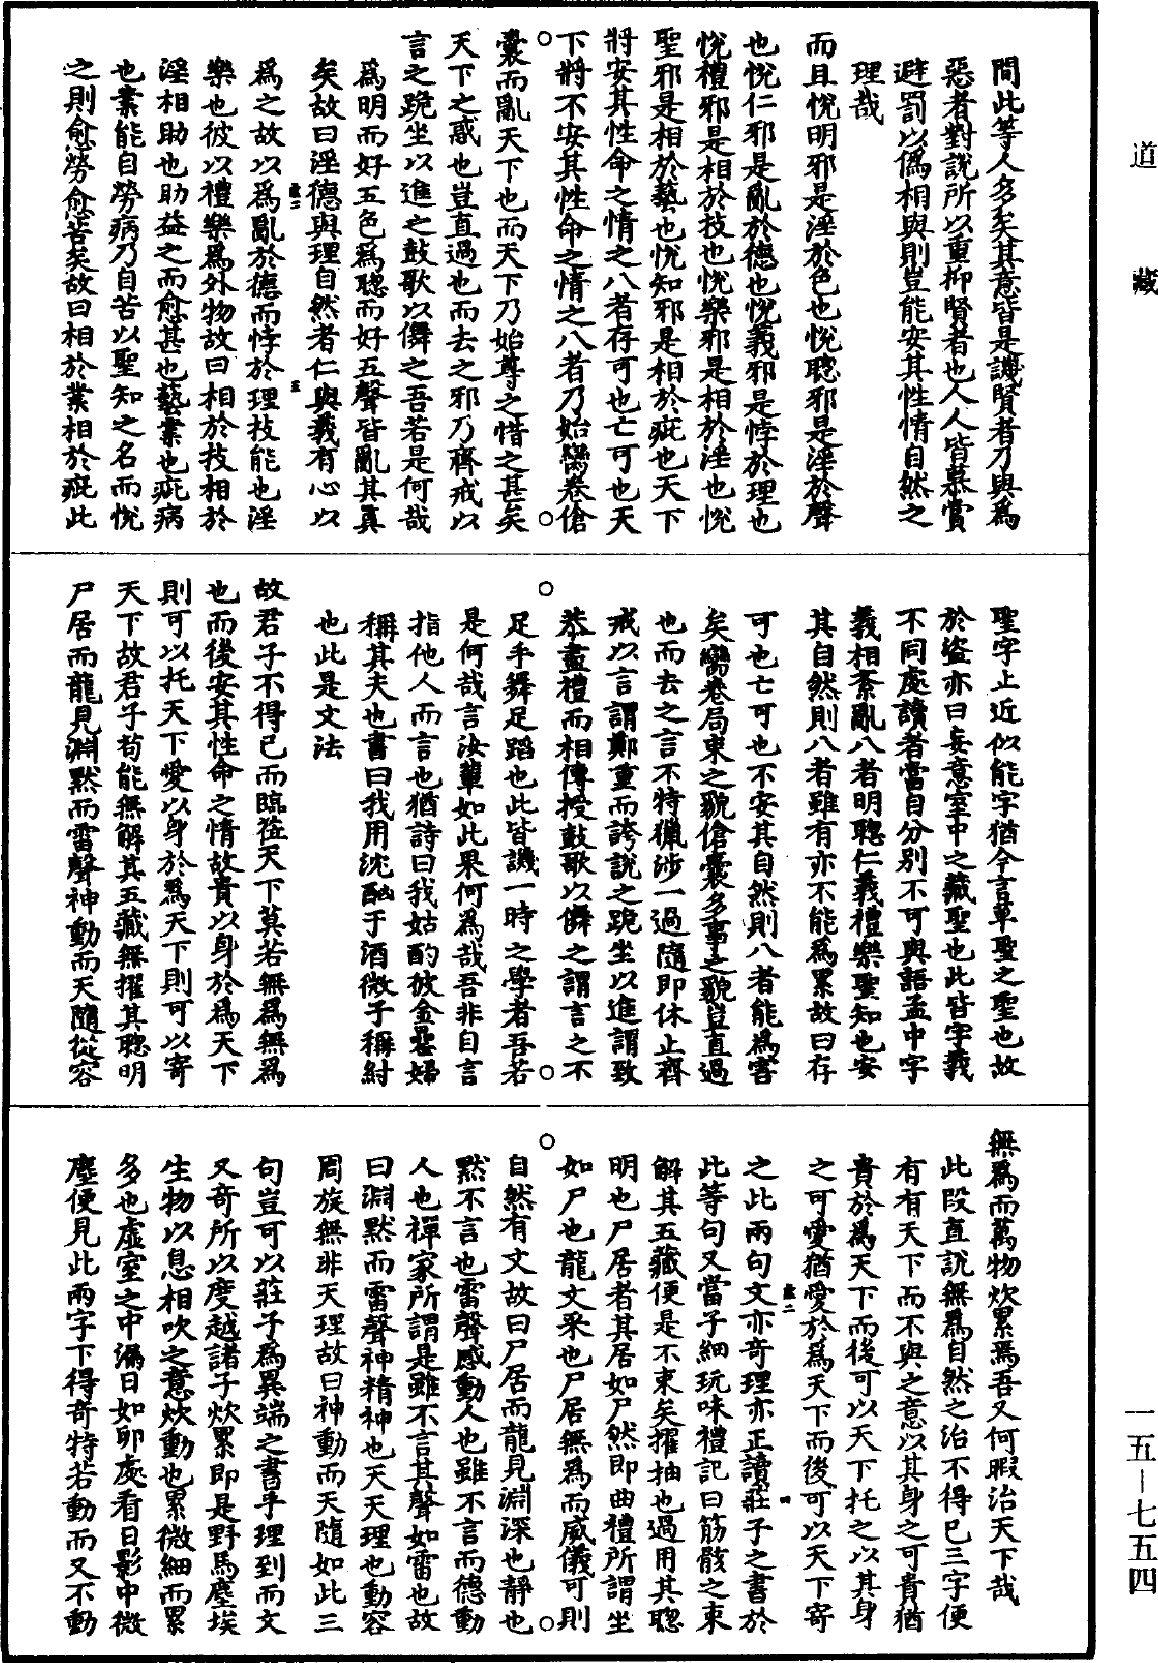 道藏
間此等人多矣其意皆是譏賢者乃與爲
惡者對說所以重抑賢者也人人皆慕賞
避罰以僞相與則豈能安其性情自然之
理哉
而且悅明邪是淫於色也悅聰邪是淫於聲
也悅仁邪是亂於德也悅義邪是悖於理也
悅禮邪是相於技也悅樂邪是相於淫也悅
聖邪是相於藝也悅知邪是相於疵也天下
將安其性命之情之八者存可也亡可也天
下將不安其性命之情之八者乃始臠卷傖
囊而亂天下也而天下乃始尊之惜之甚矣
天下之惑也豈直過也而去之邪乃齊戒以
言之跪坐以進之鼓歌以儛之吾若是何哉
爲明而好五色爲聰而好五聲皆亂其真
矣故曰淫德與理自然者仁與義有心以
爲之故以爲亂於德而悖於理技能也淫
樂也彼以禮樂爲外物故曰相於技相於
淫相助也助益之而愈甚也藝業也疵病
也業能自勞病乃自苦以聖知之名而悅
之則愈勞愈苦矣故曰相於業相於疵此
聖字止近似能字猶今言草聖之聖也故
於盜亦曰妄意室中之藏聖也此皆字義
不同處讀者當自分別不可與語孟中字
義相紊亂八者明聰仁義禮樂聖知也安
其自然則八者雖有亦不能爲累故曰存
可也亡可也不安其自然則八者能爲害
矣臠卷局束之貌傖囊多事之貌豈直過
也而去之言不特獵涉一過隨即休止齊
戒以言謂鄭重而誇說之跪坐以進謂致
恭盡禮而相傳授鼓歌以儛之謂言之不
足手舞足蹈也此皆譏一時之學者吾若
是何哉言汝輩如此果何爲哉吾非自言
指他人而言也猶詩曰我姑酌彼金罍婦
稱其夫也書曰我用沈酗于酒微子稱紂
也此是文法
故君子不得已而臨莅天下莫若無爲無爲
也而後安其性命之情故貴以身於爲天下
則可以托天下愛以身於爲天下則可以寄
天下故君子苟能無解其五藏無擢其聰明
尸居而龍見淵默而雷聲神動而天隨從容
無爲而萬物炊累焉吾又何暇治天下哉
此段直說無爲自然之治不得已三字便
有有天下而不與之意以其身之可貴猶
貴於爲天下而後可以天下托之以其身
之可愛猶愛於爲天下而後可以天下寄
之此兩句文亦奇理亦正讀莊子之書於
此等句又當子細玩味禮記曰筋骸之束
解其五藏便是不束矣擢抽也過用其聰
明也尸居者其居如尸然即曲禮所謂坐
如尸也龍文采也尸居無爲而威儀可則
自然有文故曰尸居而龍見淵深也靜也
默不言也雷聲感動人也雖不言而德動
人也禪家所謂是雖不言其聲如雷也故
曰淵默而雷聲神精神也天天理也動容
周旋無非天理故曰神動而天隨如此三
句豈可以莊子爲異端之書乎理到而文
又奇所以度越諸子炊累即是野馬塵埃
生物以息相吹之意炊動也累微細而累
多也虛室之中漏日如卵處看日影中微
塵便見此兩字下得奇特若動而又不動
一五—七五四